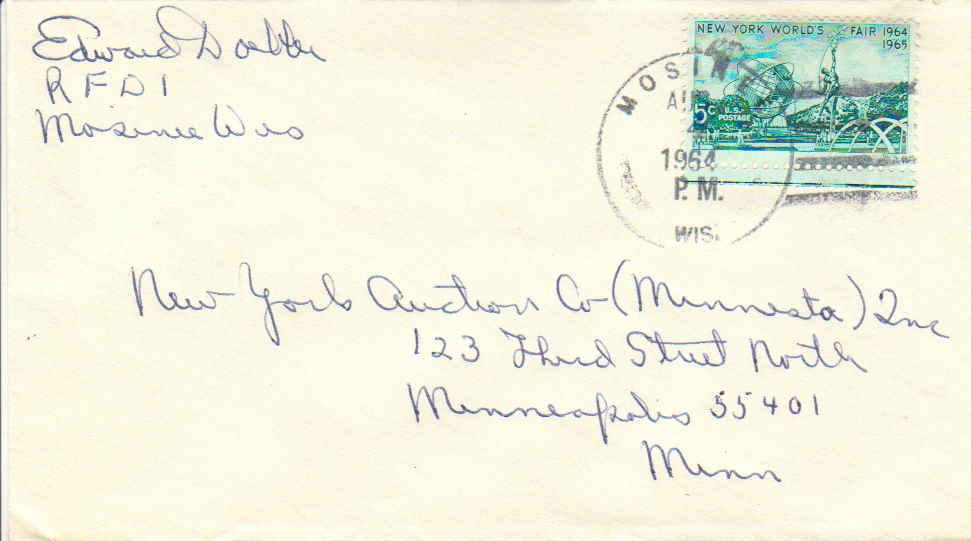 Edward
R F D 1
Mosinee Wis
NEW YORK WORLD'S FAIR 1964
1965
5c U.S.
POSTAGE
MOSINEE
1964
P.M.
WIS.
New York Auction Co (Minnesota) Inc
123 Third Street North
Minneapolis 55401
Minn